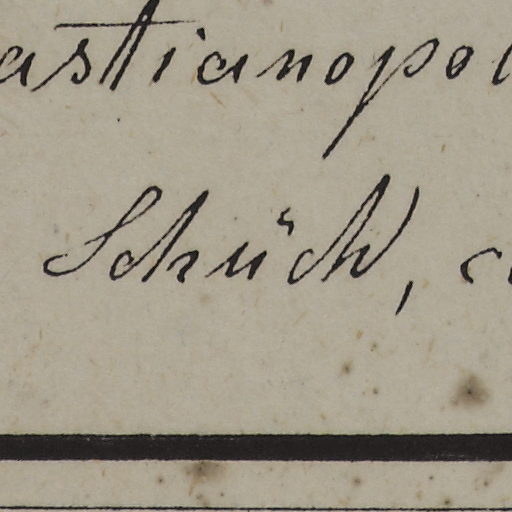 astianopol
Schüch, c